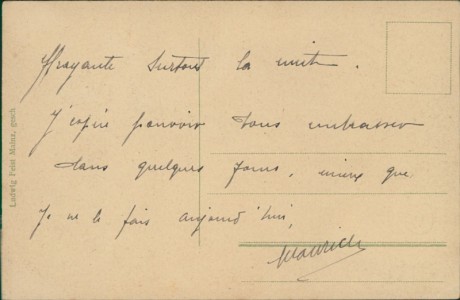 effrayante surtout la nuit.
J'espère pouvoir vous embrasser
dans quelques jours, mieux que
Je ne le fais aujourd'hui,
Maurice
Ludwig Feist Mainz, gesch.